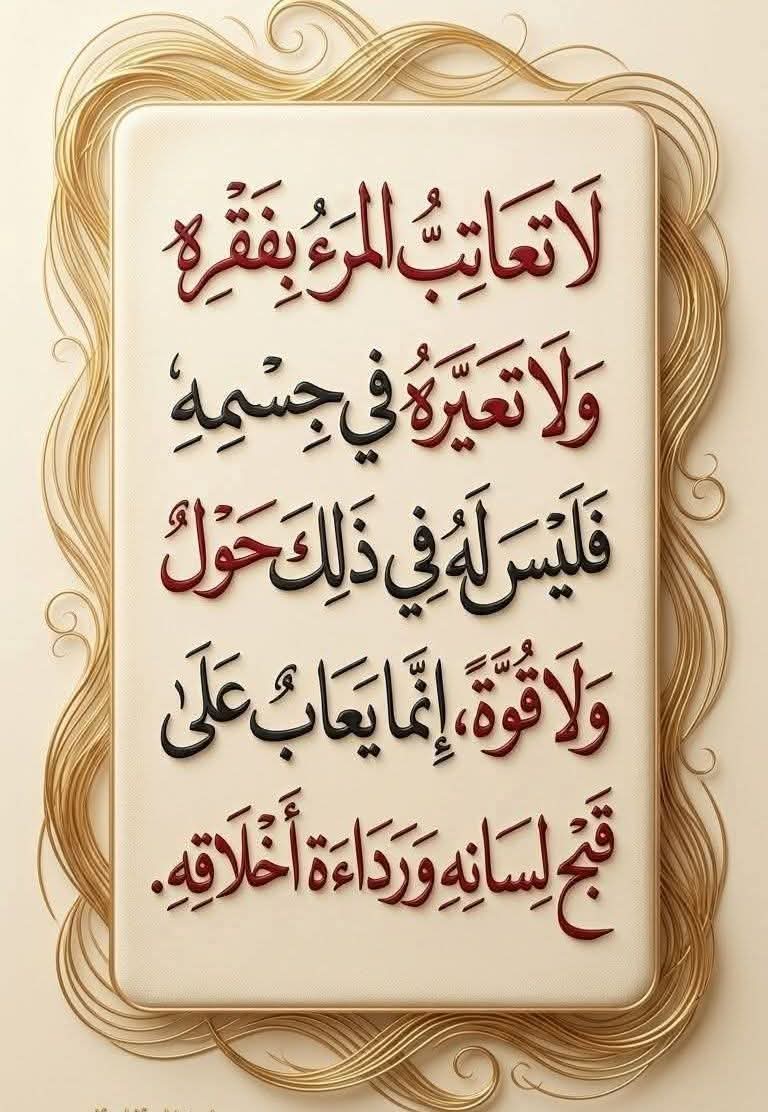 لَا تَعَاتِبُّ المَرَءُ بِفَقْرِهِ
وَلَا تَعَيَّرَهُ في جِسْمِهِ
فَلَيْسَ لَهُ فِي ذَلِكَ حَوْلٌ
وَلَا قُوَّةً، إِنَّمَا يَعَابٌ عَلَىٰ
قَبْح لِسَانِهِ وَرَدَاءَة أَخْلَاقِهِ.